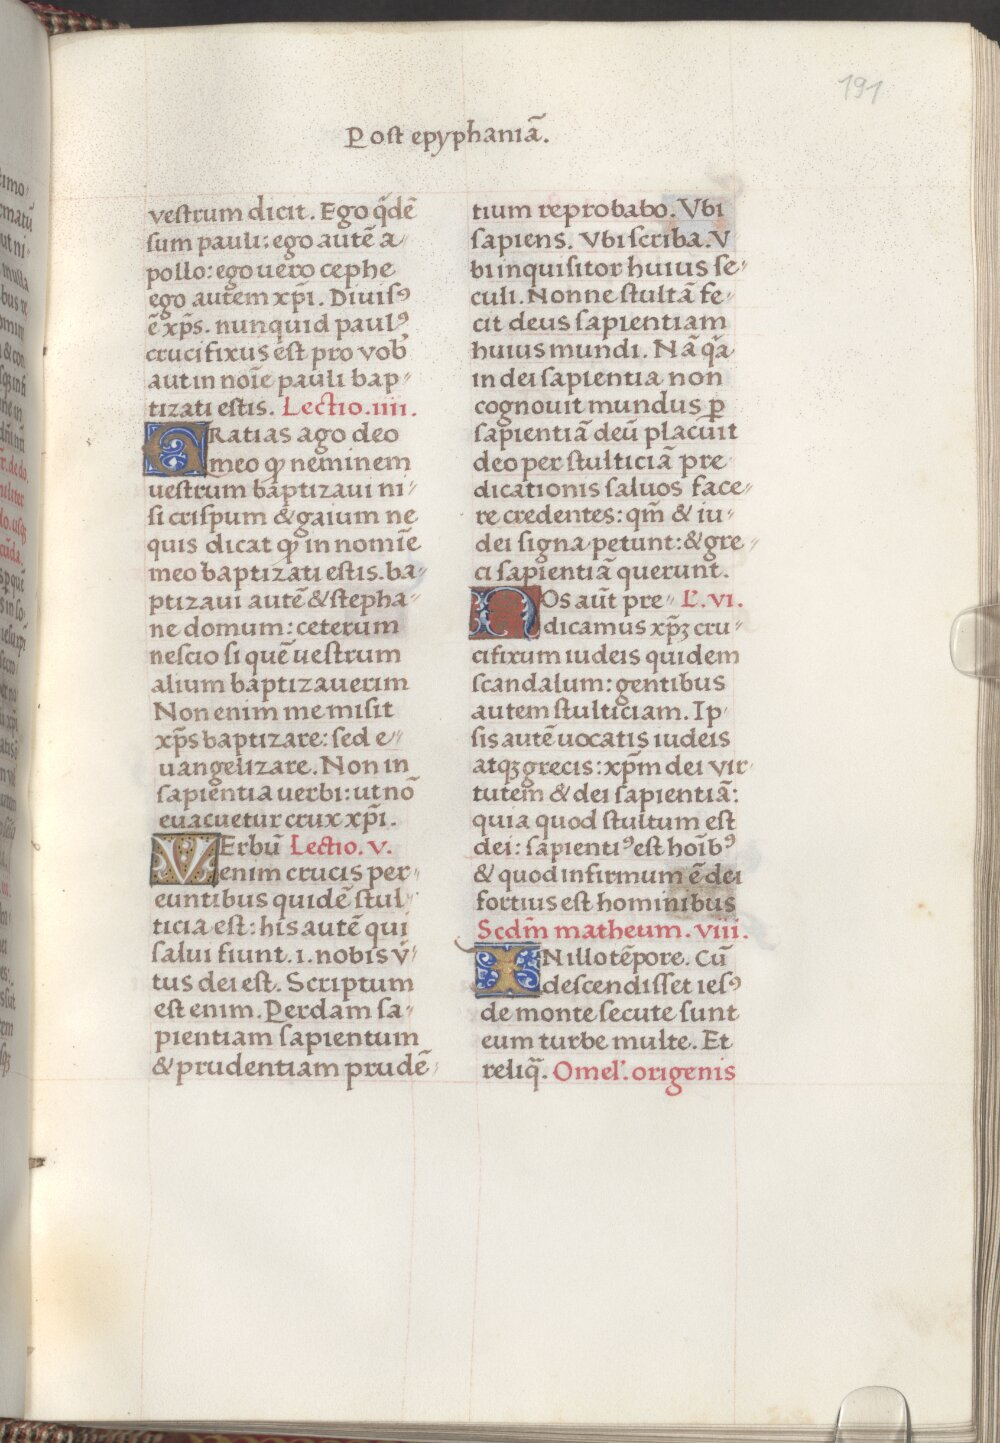 191
Post epyphaniā.
vestrum dicit. Ego q̄dē
sum pauli: ego autē a
pollo: ego uero cephe
ego autem xp̄i. Diuisꝰ
ē xp̄s. nunquid paulꝰ
crucifixus est pro vob̄
aut in noīe pauli bap
tizati estis. Lectio. iiii.
GRatias ago deo
meo ꝙ neminem
uestrum baptizaui ni
si crispum & gaium ne
quis dicat ꝙ in nomīe
meo baptizati estis. ba
ptizaui autē & stepha
ne domum: ceterum
nescio si quē uestrum
alium baptizauerim
Non enim me misit
xp̄s baptizare: sed e
uangelizare. Non in
sapientia uerbi: ut nō
evacuetur crux xp̄i.
VErbū Lectio. v.
enim crucis per
euntibus quidē stul
ticia est: his autē qui
salui fiunt. i. nobis v̄
tus dei est. Scriptum
est enim. Perdam sa
pientiam sapientum
& prudentiam prudē
tium reprobabo. Vbi
sapiens. Vbi scriba. V
bi inquisitor huius se
culi. Nonne stultā fe
cit deus sapientiam
huius mundi. Nā q̄a
in dei sapientia non
cognouit mundus ꝑ
sapientiā deū placuit
deo per stulticiā pre
dicationis saluos face
re credentes: qm̄ & iu
dei signa petunt: & gre
ci sapientiā querunt.
NOs aūt pre L'. vi.
dicamus xp̄ꝫ cru
cifixum iudeis quidem
scandalum: gentibus
autem stulticiam. Ip
sis autē uocatis iudeis
atqꝫ grecis: xp̄m dei vir
tutem & dei sapientiā:
quia quod stultum est
dei: sapientiꝰ est hoībꝰ
& quod infirmum ē dei
fortius est hominibus
Scdm̄ matheum. viii.
IN illo tēpore. Cū
descendisset iesꝰ
de monte secute sunt
eum turbe multe. Et
reliq̄. Omel'. origenis